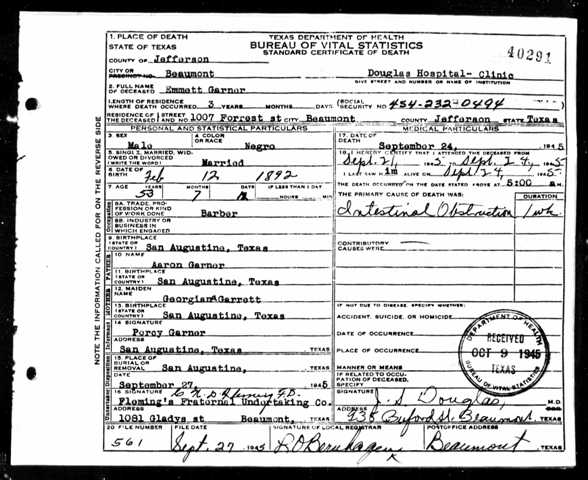 1. PLACE OF DEATH
STATE OF TEXAS
TEXAS DEPARTMENT OF HEALTH
BUREAU OF VITAL STATISTICS
STANDARD CERTIFICATE OF DEATH
40291
COUNTY OF Jefferson
CITY OR PRECINCT NO. Beaumont Douglas Hospital- Clinic
GIVE STREET AND NUMBER OR NAME OF INSTITUTION
2. FULL NAME OF DECEASED Emmett Garner
LENGTH OF RESIDENCE WHERE DEATH OCCURRED 3 YEARS MONTHS DAYS (SOCIAL SECURITY NO. 454-232-0494
RESIDENCE OF THE DECEASED STREET AND NO. 1007 Forrest st CITY Beaumont COUNTY Jefferson STATE Texas
PERSONAL AND STATISTICAL PARTICULARS
3. SEX Male
4. COLOR OR RACE Negro
5. SINGLE, MARRIED, WIDOWED OR DIVORCED (WRITE THE WORD) Married
6. DATE OF BIRTH Feb 12 1892
7. AGE YEARS 53 MONTHS 7 DAYS IF LESS THAN 1 DAY HOURS MIN.
8A. TRADE, PROFESSION OR KIND OF WORK DONE Barber
8B. INDUSTRY OR BUSINESS IN WHICH ENGAGED
9. BIRTHPLACE (STATE OR COUNTRY) San Augustine, Texas
FATHER
10. NAME Aaron Garner
11. BIRTHPLACE (STATE OR COUNTRY) San Augustine, Texas
MOTHER
12. MAIDEN NAME Georgian Garrett
13. BIRTHPLACE (STATE OR COUNTRY) San Augustine, Texas
Informant
14. SIGNATURE Percy Garner
ADDRESS San Augustine, Texas TEXAS
15. PLACE OF BURIAL OR REMOVAL San Augustine, TEXAS
DATE September 27 1945
16. SIGNATURE F.D.
Fleming's Fraternal Undertaking Co.
ADDRESS 1081 Gladys st Beaumont, TEXAS
MEDICAL PARTICULARS
17. DATE OF DEATH September 24, 1945
18. I HEREBY CERTIFY THAT I ATTENDED THE DECEASED FROM
Sept. 21 1945 to Sept. 24, 1945
I LAST SAW H im ALIVE ON Sept 24 1945
THE DEATH OCCURRED ON THE DATE STATED ABOVE AT 5:00 M.
THE PRIMARY CAUSE OF DEATH WAS: DURATION
Intestinal Obstruction 1 wk
CONTRIBUTORY CAUSES WERE
IF NOT DUE TO DISEASE, SPECIFY WHETHER:
ACCIDENT, SUICIDE, OR HOMICIDE
DATE OF OCCURRENCE
PLACE OF OCCURRENCE
MANNER OR MEANS
IF RELATED TO OCCUPATION OF DECEASED, SPECIFY
SIGNATURE Douglas, M.D.
ADDRESS 935 Buford St. Beaumont TEXAS
DEPARTMENT OF HEALTH
RECEIVED
OCT 9 1945
TEXAS
BUREAU OF VITAL STATISTICS
20 FILE NUMBER 561
FILE DATE Sept. 27 1945
SIGNATURE OF LOCAL REGISTRAR
POSTOFFICE ADDRESS Beaumont TEXAS
NOTE THE INFORMATION CALLED FOR ON THE REVERSE SIDE